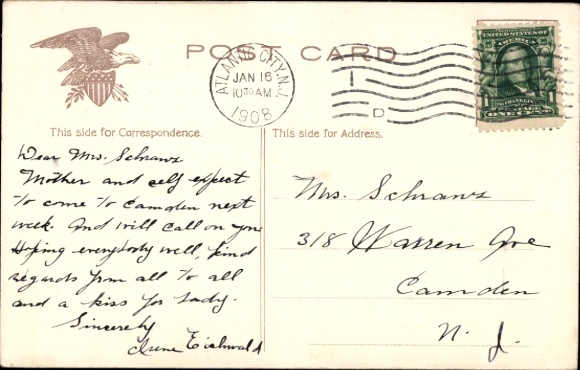 POST CARD
ATLANTIC CITY, N.J.
JAN 16
10 30 AM
1908
1
D
UNITED STATES OF
AMERICA
FRANKLIN
1 ONE CENT
This side for Correspondence.
This side for Address.
Dear Mrs. Schranz
Mother and self expect
to come to Camden next
week. And will call on you
Hoping everybody well, kind
regards from all to all
and a kiss for Lady.
Sincerely
Irene Eichwald
Mrs. Schranz
318 Warren Ave
Camden
N. J.